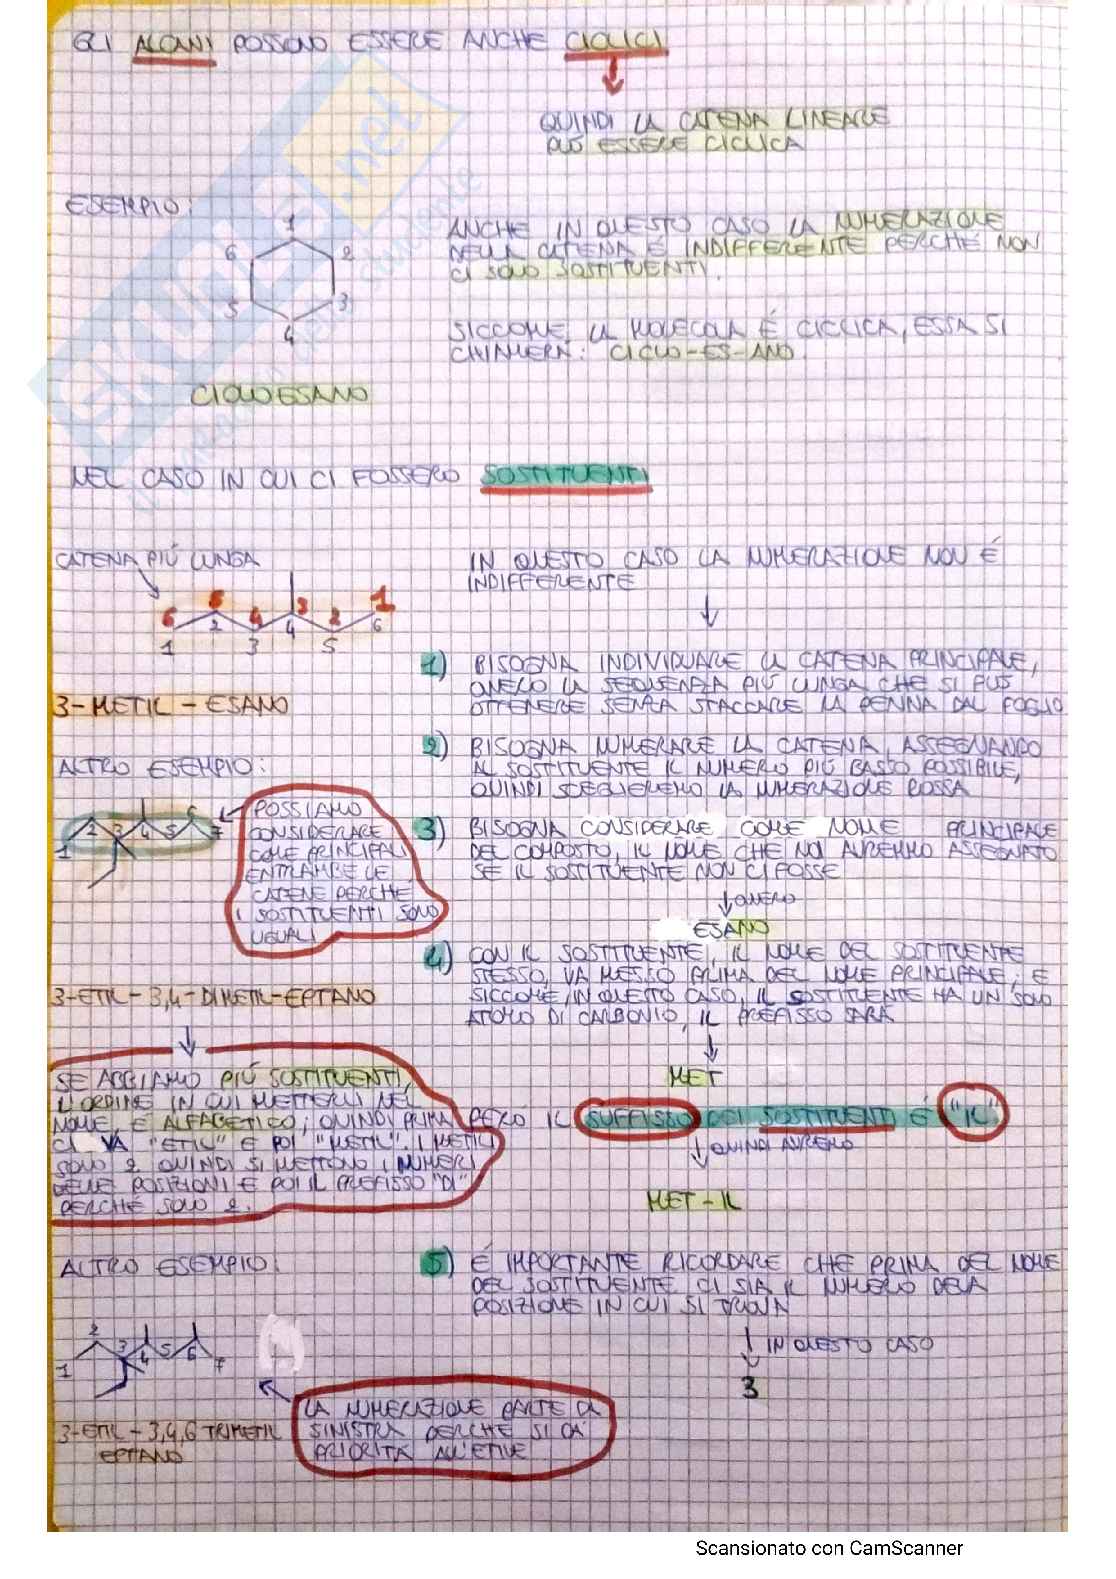 GLI ALCANI POSSONO ESSERE ANCHE CICLICI
QUINDI LA CATENA LINEARE
PUÓ ESSERE CICLICA
ESEMPIO:
1
6 2
5 3
4
ANCHE IN QUESTO CASO LA NUMERAZIONE
DELLA CATENA É INDIFFERENTE PERCHÉ NON
CI SONO SOSTITUENTI.
SICCOME LA MOLECOLA É CICLICA, ESSA SI
CHIAMERÁ: CICLO-ES-ANO
CICLOESANO
NEL CASO IN CUI CI FOSSERO SOSTITUENTI
CATENA PIÚ LUNGA
6 5 4 3 2 1
1 2 3 4 5 6
3-METIL-ESANO
IN QUESTO CASO LA NUMERAZIONE NON É
INDIFFERENTE
1) BISOGNA INDIVIDUARE LA CATENA PRINCIPALE,
OVVERO LA SEQUENZA PIÚ LUNGA CHE SI PUÓ
OTTENERE SENZA STACCARE LA PENNA DAL FOGLIO
2) BISOGNA NUMERARE LA CATENA, ASSEGNANDO
AL SOSTITUENTE IL NUMERO PIÚ BASSO POSSIBILE,
QUINDI SCEGLIEREMO LA NUMERAZIONE ROSSA
3) BISOGNA CONSIDERARE COME NOME PRINCIPALE
DEL COMPOSTO, IL NOME CHE NOI AVREMMO ASSEGNATO
SE IL SOSTITUENTE NON CI FOSSE
OVVERO
ESANO
4) CON IL SOSTITUENTE, IL NOME DEL SOSTITUENTE
STESSO, VA MESSO PRIMA DEL NOME PRINCIPALE; E
SICCOME, IN QUESTO CASO, IL SOSTITUENTE HA UN SOLO
ATOMO DI CARBONIO, IL PREFISSO SARÁ
MET
PERÓ IL SUFFISSO DEI SOSTITUENTI É "IL"
QUINDI AVREMO
MET-IL
5) É IMPORTANTE RICORDARE CHE PRIMA DEL NOME
DEL SOSTITUENTE CI SIA IL NUMERO DELLA
POSIZIONE IN CUI SI TROVA
IN QUESTO CASO
3
ALTRO ESEMPIO:
1 2 3 4 5 6 7
POSSIAMO
CONSIDERARE
COME PRINCIPALI
ENTRAMBE LE
CATENE PERCHÉ
I SOSTITUENTI SONO
UGUALI
3-ETIL-3,4-DIMETIL-EPTANO
SE ABBIAMO PIÚ SOSTITUENTI,
L'ORDINE IN CUI METTERLI NEL
NOME, É ALFABETICO, QUINDI PRIMA
CI VA "ETIL" E POI "METIL". I METIL
SONO 2 QUINDI SI METTONO I NUMERI
DELLE POSIZIONI E POI IL PREFISSO "DI"
PERCHÉ SONO 2.
ALTRO ESEMPIO:
1 2 3 4 5 6 7
LA NUMERAZIONE PARTE DA
SINISTRA PERCHÉ SI DÁ
PRIORITÁ ALL'ETILE
3-ETIL-3,4,6 TRIMETIL
EPTANO
SKUOLA.net
Scansionato con CamScanner